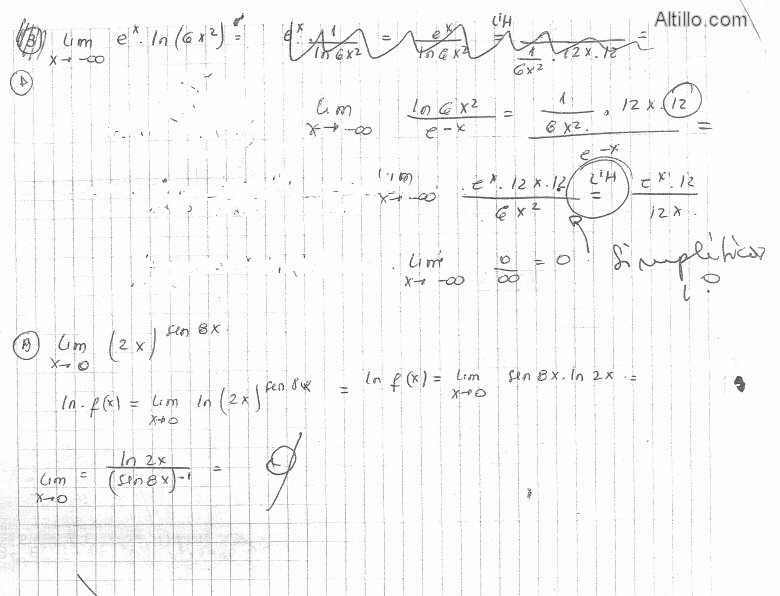 Altillo.com
③ lim x→-∞ e^x · ln(6x²) = e^x · 1/ln 6x² = e^x/ln 6x² L'H = 1/6x² · 12x · 12 =
Ⓐ
lim x→-∞ ln 6x²/e^-x = (1/6x² · 12x · 12)/e^-x =
lim x→-∞ e^x · 12x · 12/6x² L'H = e^x · 12/12x
lim x→-∞ 0/∞ = 0
Ⓑ lim x→0 (2x)^sen 8x
ln · f(x) = lim x→0 ln (2x)^sen 8x = ln f(x) = lim x→0 sen 8x · ln 2x =
lim x→0 = ln 2x/(sen 8x)^-1 =